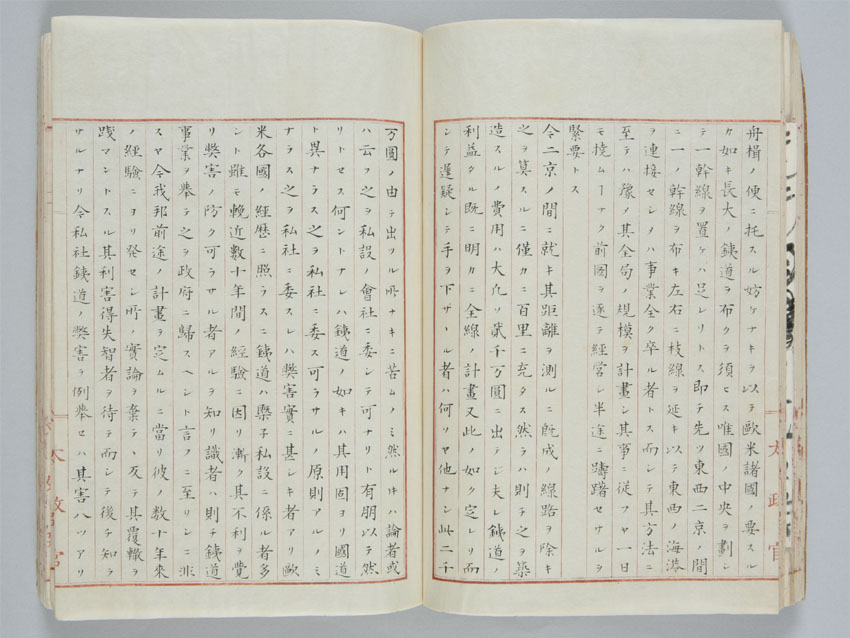 舟楫ノ便ニ托スル妨ケナキヲ以テ歐米諸國ノ要スル
ケ如キ長大ノ鉄道ヲ布クヲ須ヒス唯國ノ中央ヲ劃シ
テ一幹線ヲ置ケハ足レリトス即チ先ツ東西二京ノ間
ニ一ノ幹線ヲ布キ左右ニ枝線ヲ延キ以テ東西ノ海港
ヲ連接セシメハ事業全ク卒ル者トス而シテ其方法ニ
至テハ豫メ其全局ノ規模ヲ計畫シ其事ニ從フヤ一日
モ撓ムーナク前圖ヲ逐テ經営シ半途ニ躊躇セサルヲ
緊要トス
今二京ノ間ニ就キ其距離ヲ測ルニ既成ノ線路ヲ除キ
之ヲ算スルニ僅カニ百里ニ充タス然ラハ則チ之ヲ築
造スルノ費用ハ大凢ソ貳千万圓ニ出テシ夫レ鉄道ノ
利益タル既ニ明カニ全線ノ計畫又此ノ如ク定レリ而
シテ遅疑シテ手ヲ下サヽル者ハ何ソヤ他ナシ此二千
万圓ノ由テ出ツル所ナキニ苦ムノミ然ルキハ論者或
ハ云フ之ヲ私設ノ會社ニ委シテ可ナリト有朋以テ然
リトセス何ントナレハ鉄道ノ如キハ其用固ヨリ國道
ト異ナラス之ヲ私社ニ委ス可ラサルノ原則アルノミ
ナラス之ヲ私社ニ委スレハ獘害實ニ甚シキ者アリ歐
米各國ノ經歴ニ照ラスニ鉄道ハ槩子私設ニ係ル者多
シト雖モ輓近數十年間ノ經驗ニ因リ漸ク其不利ヲ覺
リ獘害ノ防ク可ラサル者アルヲ知リ識者ハ則チ鉄道
事業ヲ挙テ之ヲ政府ニ歸スヘシト言フニ至リシニ非
スヤ今我邦前途ノ計畫ヲ定ムルニ當リ彼ノ數十年來
ノ經驗ニヨリ発セシ所ノ實論ヲ棄テヽ反テ其覆轍ヲ
踐マントスル其利害得失智者ヲ待テ而シテ後チ知ラ
サルナリ今私社鉄道ノ獘害ヲ例挙セハ其害八ツアリ
太政官
太政官